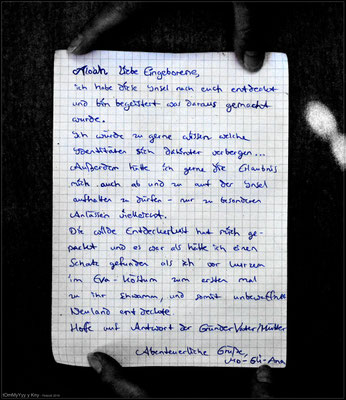 Aloah liebe Eingeborene,
ich habe diese Insel nach euch entdeckt
und bin begeistert was daraus gemacht
wurde.
Ich würde zu gerne wissen welche
Identitäten sich dahinter verbergen...
Außerdem hätte ich gerne die Erlaubnis
mich auch ab und zu auf der Insel
aufhalten zu dürfen - nur zu besonderen
Anlässen vielleicht.
Die wilde Entdeckerlust hat mich ge-
packt und es war als hätte ich einen
Schatz gefunden als ich vor kurzem
im Eva-Kostüm zum ersten mal
zu ihr schwamm, und somit unbewaffnet
Neuland entdeckte
Hoffe auf Antwort der Gründer Väter/Mütter
Abenteuerliche Grüße,
Mo-Gli-Ana